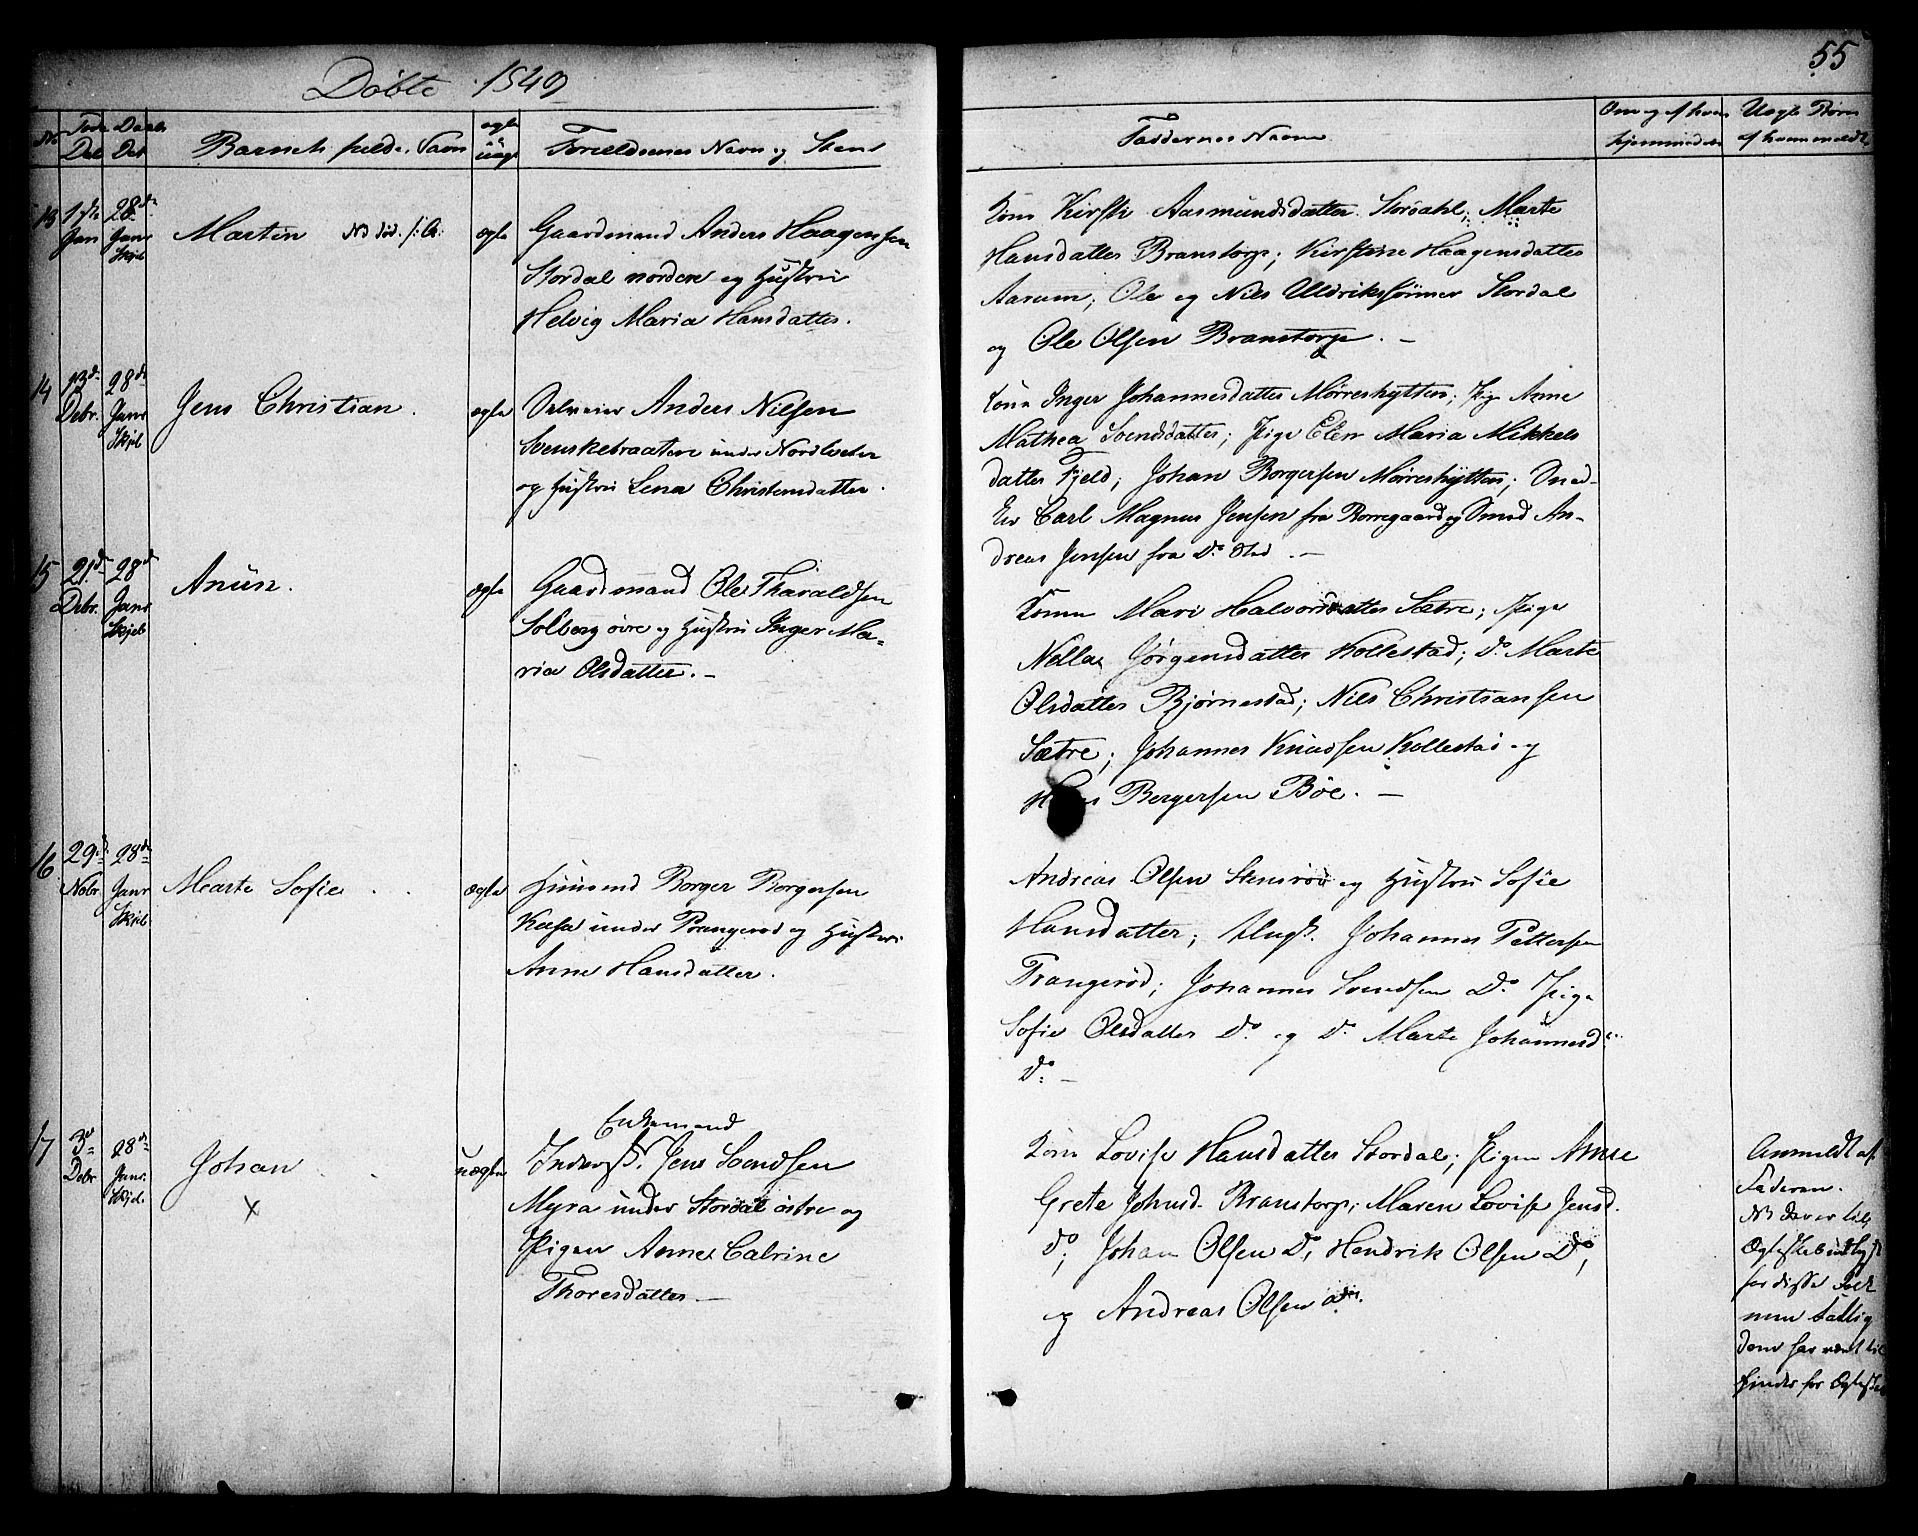 Døbte 1849
55
No
Føds Del
Daabs Dat
Barnets fulde Navn
ægte uægte
Forældrenes Navn og Stand
Faddernes Navne
Om og af hvem hjemmedøbt
Uægte Børn af hvem meldt
13
1ste Jan
28de Janr Skjeb
Martin NB død
ægte
Gaardmand Anders Haagensen
Stordal nordre og Hustru
Helvig Maria Hansdatter.
Kone Kirsti Aasmundsdatter Stordahl; Marte
Hansdatter Branstorp; Kirstine Haagensdatter
Aarum; Ole og Nils Uldrikssønner Stordal
og Ole Olsen Branstorp. —
14
13de Debr.
28de Janr Skjeb
Jens Christian.
ægte
Anders Nilsen
Svenskebraaten under Nordlveter
og Hustru Lena Christensdatter.
Kone Inger Johannesdatter Mørreshytten; Pige Anne
Mathea Svendsdatter; Pige Elen Maria Mikkels
datter Fjeld; Johan Borgersen Mørreshytten; Smed
Carl Magnus Jensen fra Borregaard og Smed An-
dreas Jensen fra Do Sted. —
15
21de Debr.
28de Janr Skjeb
Anün.
ægte
Gaardmand Ole Tharaldsen
Solberg øvre og Hustru Inger Ma-
ria Olsdatter. —
Kone Mari Halvorsdatter Sætre; Pige
Nella Jørgensdatter Kollestad; Do Marte
Olsdatter Bjørnestad; Nils Christiansen
Sætre; Johannes Knudsen Kollestad og
Hans Bergersen Böe. —
16
29de Nobr
28de Janr Skjeb
Marte Sofie
ægte
Huusmd Borger Borgersen
Kasa under Prangerød og Hustru
Anne Hansdatter.
Andreas Olsen Stensrød og Hustru Sofie
Hansdatter; Ungk. Johannes Pettersen
Prangerød; Johannes Svendsen Do Pige
Sofie Olsdatter Do og Do Marte Johannesd.
Do —
17
3de Debr
28de Janr. Skjeb.
Johan
x
uægte
Enkemand
Inderst. Jens Svendsen
Myra under Stordal østre og
Pigen Anne Catrine
Thoresdatter —
Kone Lovise Hansdatter Stordal; Pigen Anne
Grete Johnsd. Branstorp; Maren Lovise Jensd.
Do; Johan Olsen Do, Hendrik Olsen Do,
og Andreas Olsen ads.
Anmeldt af
Faderen.
NB Der er til
Ægteskab udlyst
for disse Folk
men Fattig
dom har været til
Hinder for Ægtesk